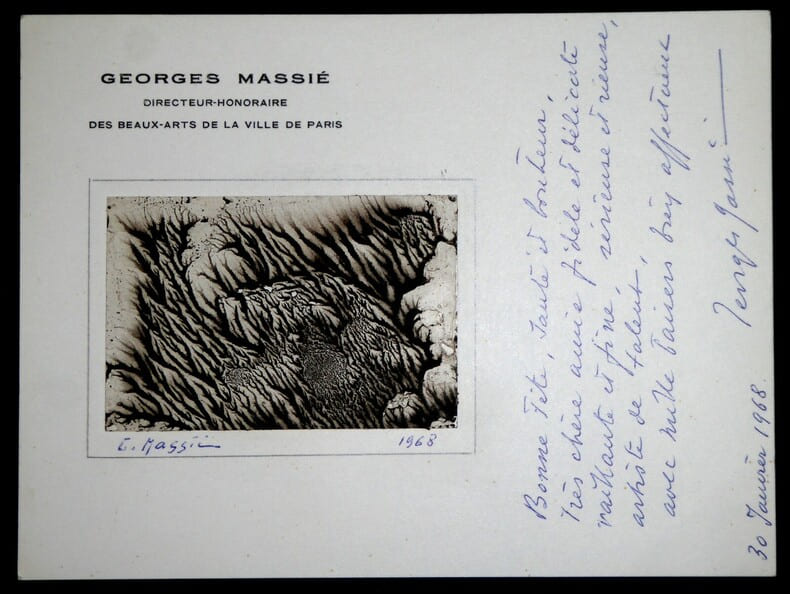 GEORGES MASSIÉ
DIRECTEUR-HONORAIRE
DES BEAUX-ARTS DE LA VILLE DE PARIS
G. Massié
1968
Bonne Fête, Santé et bonheur,
très chère amie fidèle et délicate
vaillante et fine, sérieuse et rieuse,
artiste de talent,
avec mille baisers bien affectueux
Georges Massié
30 Janvier 1968.